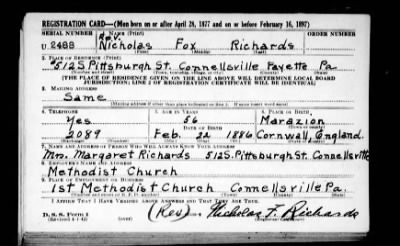 REGISTRATION CARD—(Men born on or after April 28, 1877 and on or before February 16, 1897)
SERIAL NUMBER 1. NAME (Print)
Rev.
U 2488 Nicholas Fox Richards
ORDER NUMBER
2. PLACE OF RESIDENCE (Print)
512 S Pittsburgh St. Connellsville Fayette Pa
[THE PLACE OF RESIDENCE GIVEN ON THE LINE ABOVE WILL DETERMINE LOCAL BOARD
JURISDICTION; LINE 2 OF REGISTRATION CERTIFICATE WILL BE IDENTICAL]
3. MAILING ADDRESS
Same
4. TELEPHONE 5. AGE IN YEARS 6. PLACE OF BIRTH
Yes 56 Marazion
DATE OF BIRTH
2089 Feb. 1886 Cornwall, England.
7. NAME AND ADDRESS OF PERSON WHO WILL ALWAYS KNOW YOUR ADDRESS
Mrs. Margaret Richards 512 S. Pittsburgh St. Connellsville
8. EMPLOYER'S NAME AND ADDRESS
Methodist Church
9. PLACE OF EMPLOYMENT OR BUSINESS
1st Methodist Church Connellsville Pa.
I AFFIRM THAT I HAVE VERIFIED ABOVE ANSWERS AND THAT THEY ARE TRUE.
D. S. S. Form 1
(Rev) Nicholas F. Richards